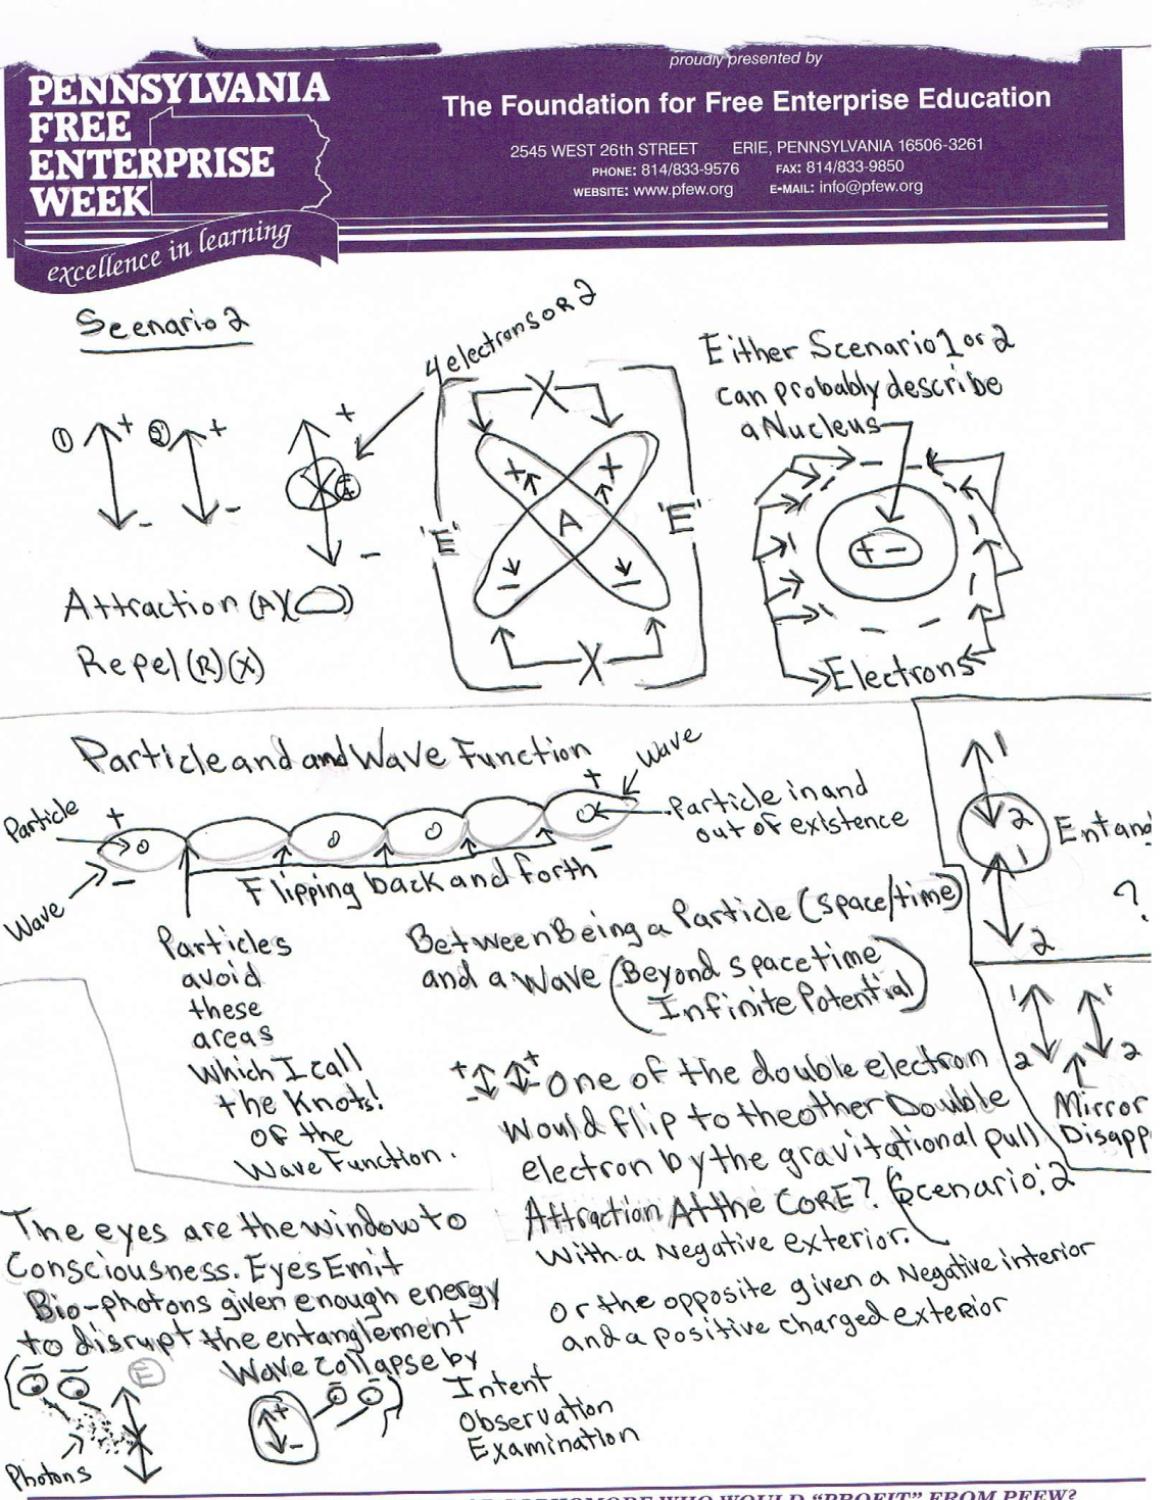 proudly presented by
PENNSYLVANIA
FREE
ENTERPRISE
WEEK
The Foundation for Free Enterprise Education
2545 WEST 26th STREET ERIE, PENNSYLVANIA 16506-3261
PHONE: 814/833-9576 FAX: 814/833-9850
WEBSITE: www.pfew.org E-MAIL: info@pfew.org
excellence in learning
Scenario 2
4 electrons OR 2
① + ② + +
- - -
A
Attraction (A)
Repel (R)(X)
X
+ +
'E' A 'E'
- -
X
Either Scenario 1 or 2
can probably describe
a Nucleus
+ -
Electrons
Particle and and Wave Function
Wave
Particle
+
+
-
-
Wave
Particle in and
out of existence
Flipping back and forth
Particles
avoid
these
areas
Which I call
the Knots!
OF the
Wave Function.
Between Being a Particle (space/time)
and a Wave (Beyond spacetime
Infinite Potential)
1
2
1
2
Entang
?
1 1
2 2
Mirror
Disapp
+ +
- -
One of the double electron
would flip to the other Double
electron by the gravitational pull
Attraction At the CORE? (Scenario: 2
With a Negative exterior.
Or the opposite given a Negative interior
and a positive charged exterior
The eyes are the window to
Consciousness. Eyes Emit
Bio-photons given enough energy
to disrupt the entanglement
Wave collapse by
Intent
Observation
Examination
E
+
-
Photons
WHO WOULD "PROFIT" FROM PFEW?